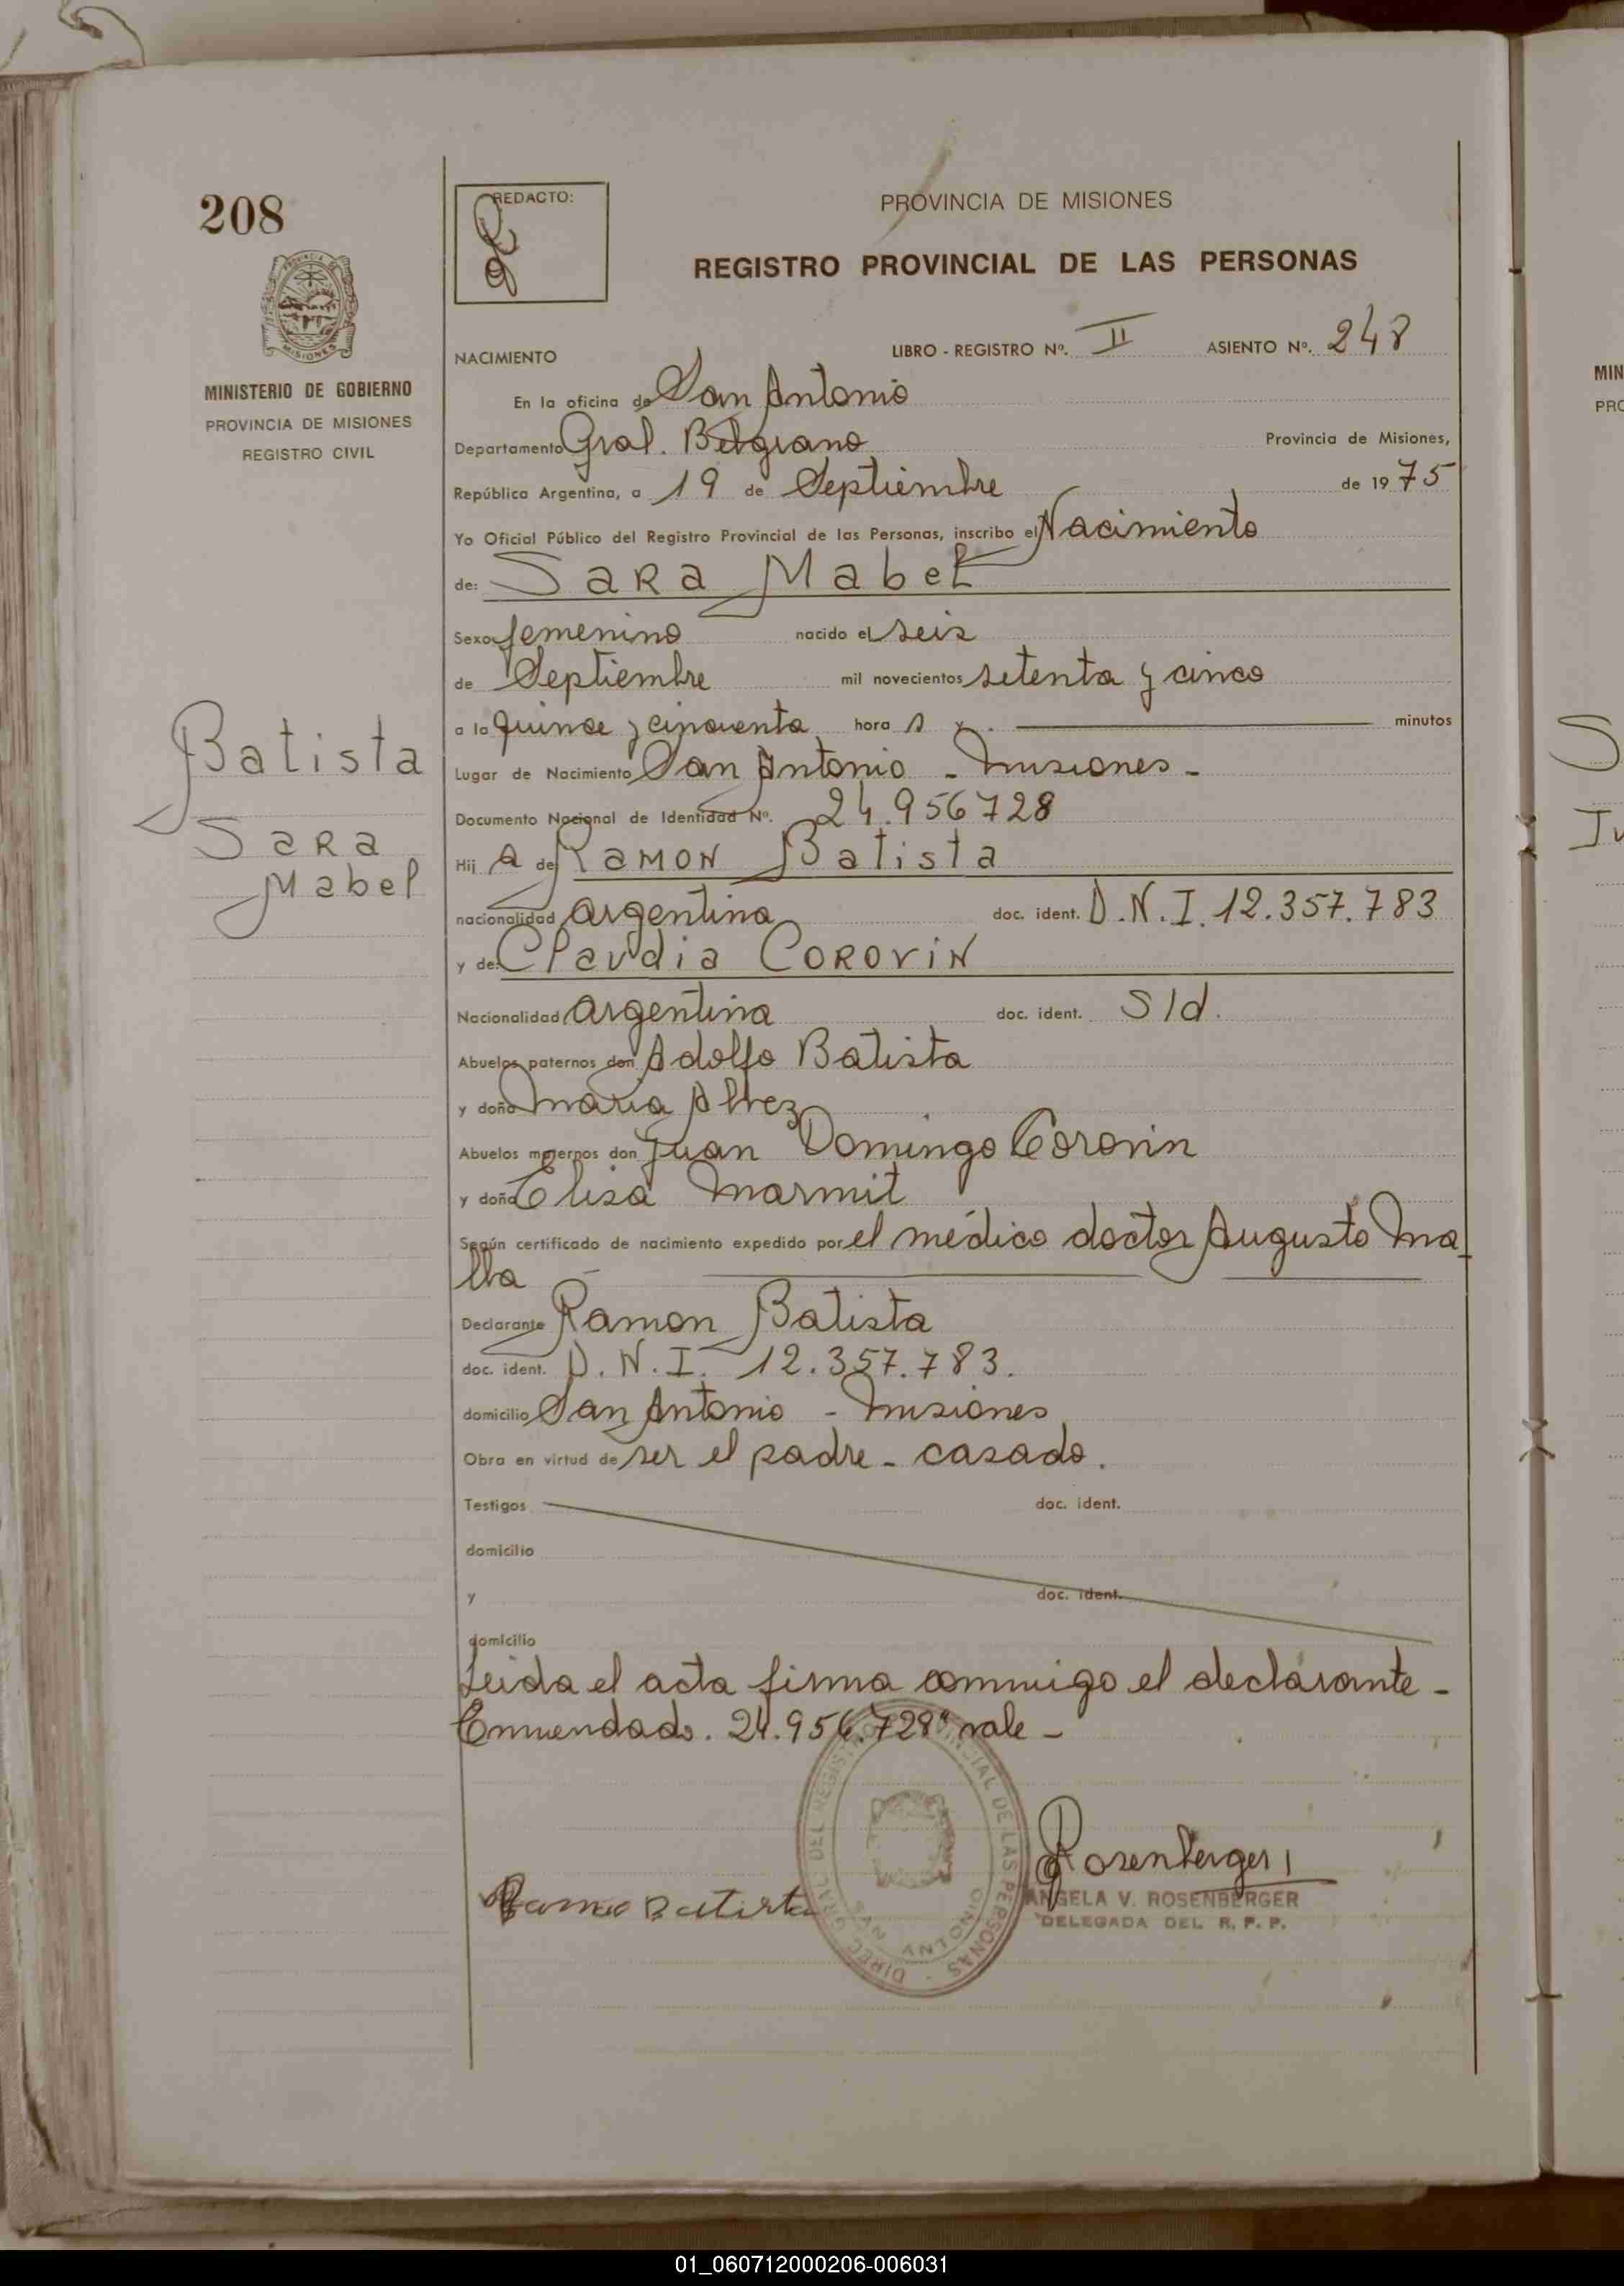 208
REDACTO:
PROVINCIA DE MISIONES
REGISTRO PROVINCIAL DE LAS PERSONAS
MISIONES
MINISTERIO DE GOBIERNO
PROVINCIA DE MISIONES
REGISTRO CIVIL
NACIMIENTO LIBRO - REGISTRO Nº. II ASIENTO Nº. 248
En la oficina de San Antonio
Departamento Gral. Belgrano Provincia de Misiones,
República Argentina, a 19 de Septiembre de 1975
Yo Oficial Público del Registro Provincial de las Personas, inscribo el Nacimiento
de: SARA MabeL
Sexo femenino nacido el seis
de Septiembre mil novecientos setenta y cinco
a la quince y cincuenta hora s y minutos
Batista
Sara
Mabel
Lugar de Nacimiento San Antonio - Misiones -
Documento Nacional de Identidad Nº. 24.956728
Hij a de RAMON Batista
nacionalidad argentina doc. ident. D.N.I. 12.357.783
y de: Claudia COROVIN
Nacionalidad argentina doc. ident. S/d.
Abuelos paternos don Adolfo Batista
y doña Maria Alvez
Abuelos maternos don Juan Domingo Corovin
y doña Elisa Marmit
Según certificado de nacimiento expedido por el médico doctor Augusto Ma-
lla
Declarante Ramon Batista
doc. ident. D.N.I. 12.357.783.
domicilio San Antonio - Misiones
Obra en virtud de ser el padre - casado.
Testigos doc. ident.
domicilio
y doc. ident.
domicilio
Leida el acta firma conmigo el declarante -
Enmendado. 24.956.728" vale -
DIREC. GRAL. DEL REGISTRO PROVINCIAL DE LAS PERSONAS -
SAN ANTONIO
Rosenberger
Ramon Batista
ANGELA V. ROSENBERGER
DELEGADA DEL R. P. P.
MIN
PRO
S
01_060712000206-006031